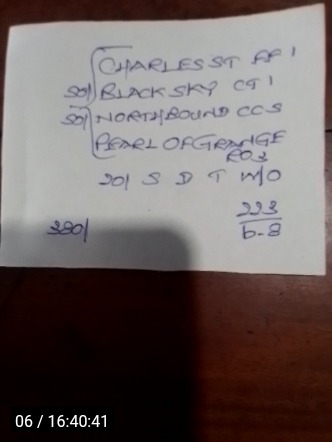 CHARLES ST RP 1
50/ BLACK SKY CT 1
50/ NORTHBOUND CCS
PEARL OF GRANGE
RO3
20/ S D T W/O
223
380/ 6-8
06 / 16:40:41